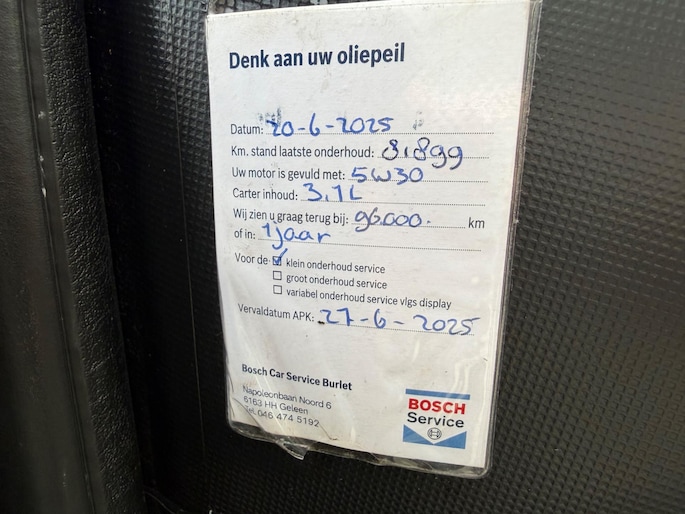 Denk aan uw oliepeil
Datum: 20-6-2025
Km. stand laatste onderhoud: 8.899
Uw motor is gevuld met: 5W30
Carter inhoud: 3,1L
Wij zien u graag terug bij: 96.000. km
of in: 1 jaar
Voor de: klein onderhoud service
groot onderhoud service
variabel onderhoud service vlgs display
Vervaldatum APK: 27-6-2025
Bosch Car Service Burlet
Napoleonbaan Noord 6
6163 HH Geleen
Tel. 046 474 5192
BOSCH
Service